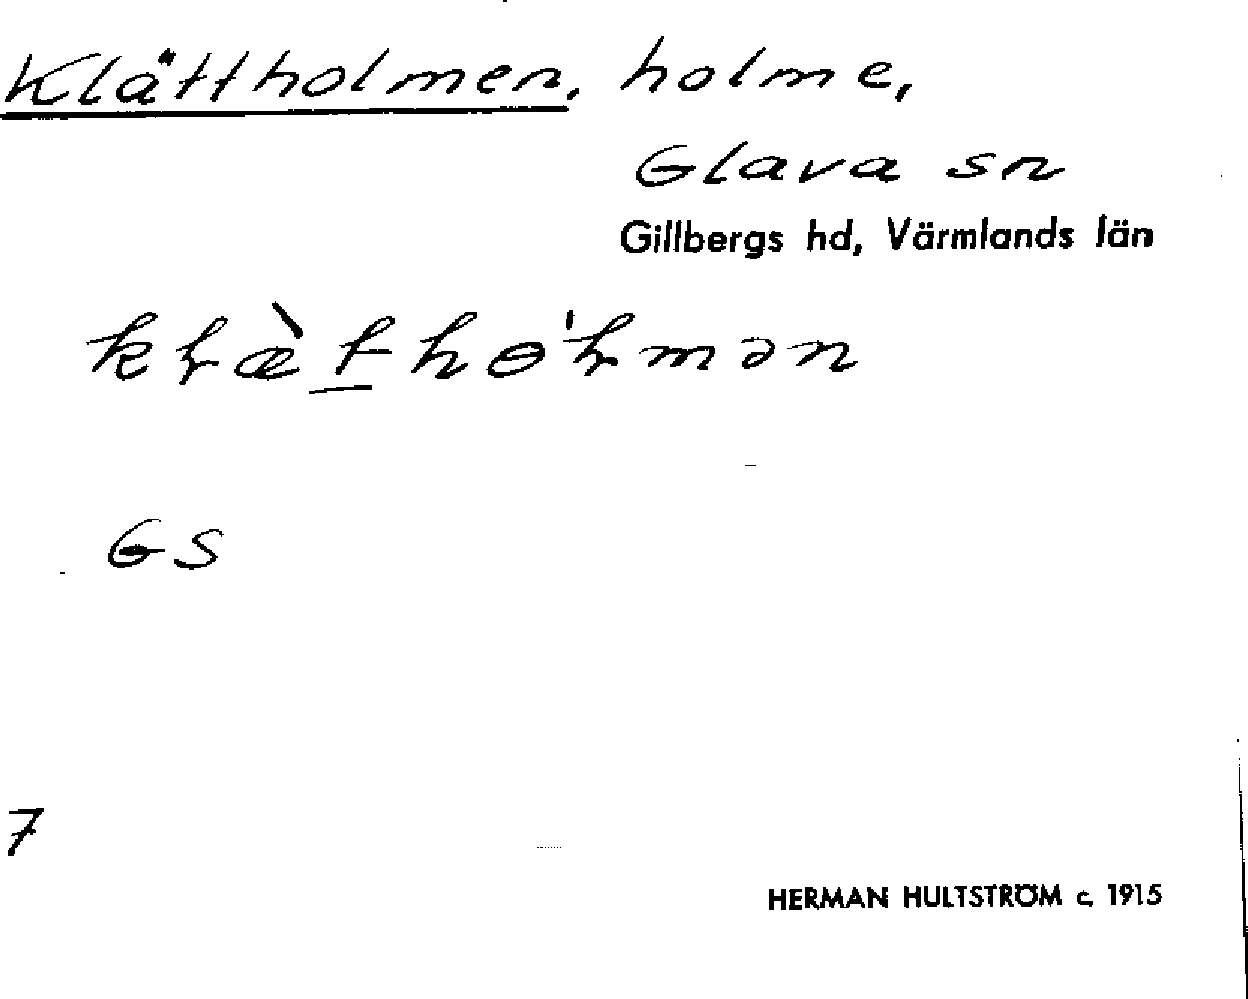 Klättholmen, holme,
Glava sn
Gillbergs hd, Värmlands län
kɽæ̀t̲hɵ'ɽmən
GS
7
HERMAN HULTSTRÖM c. 1915